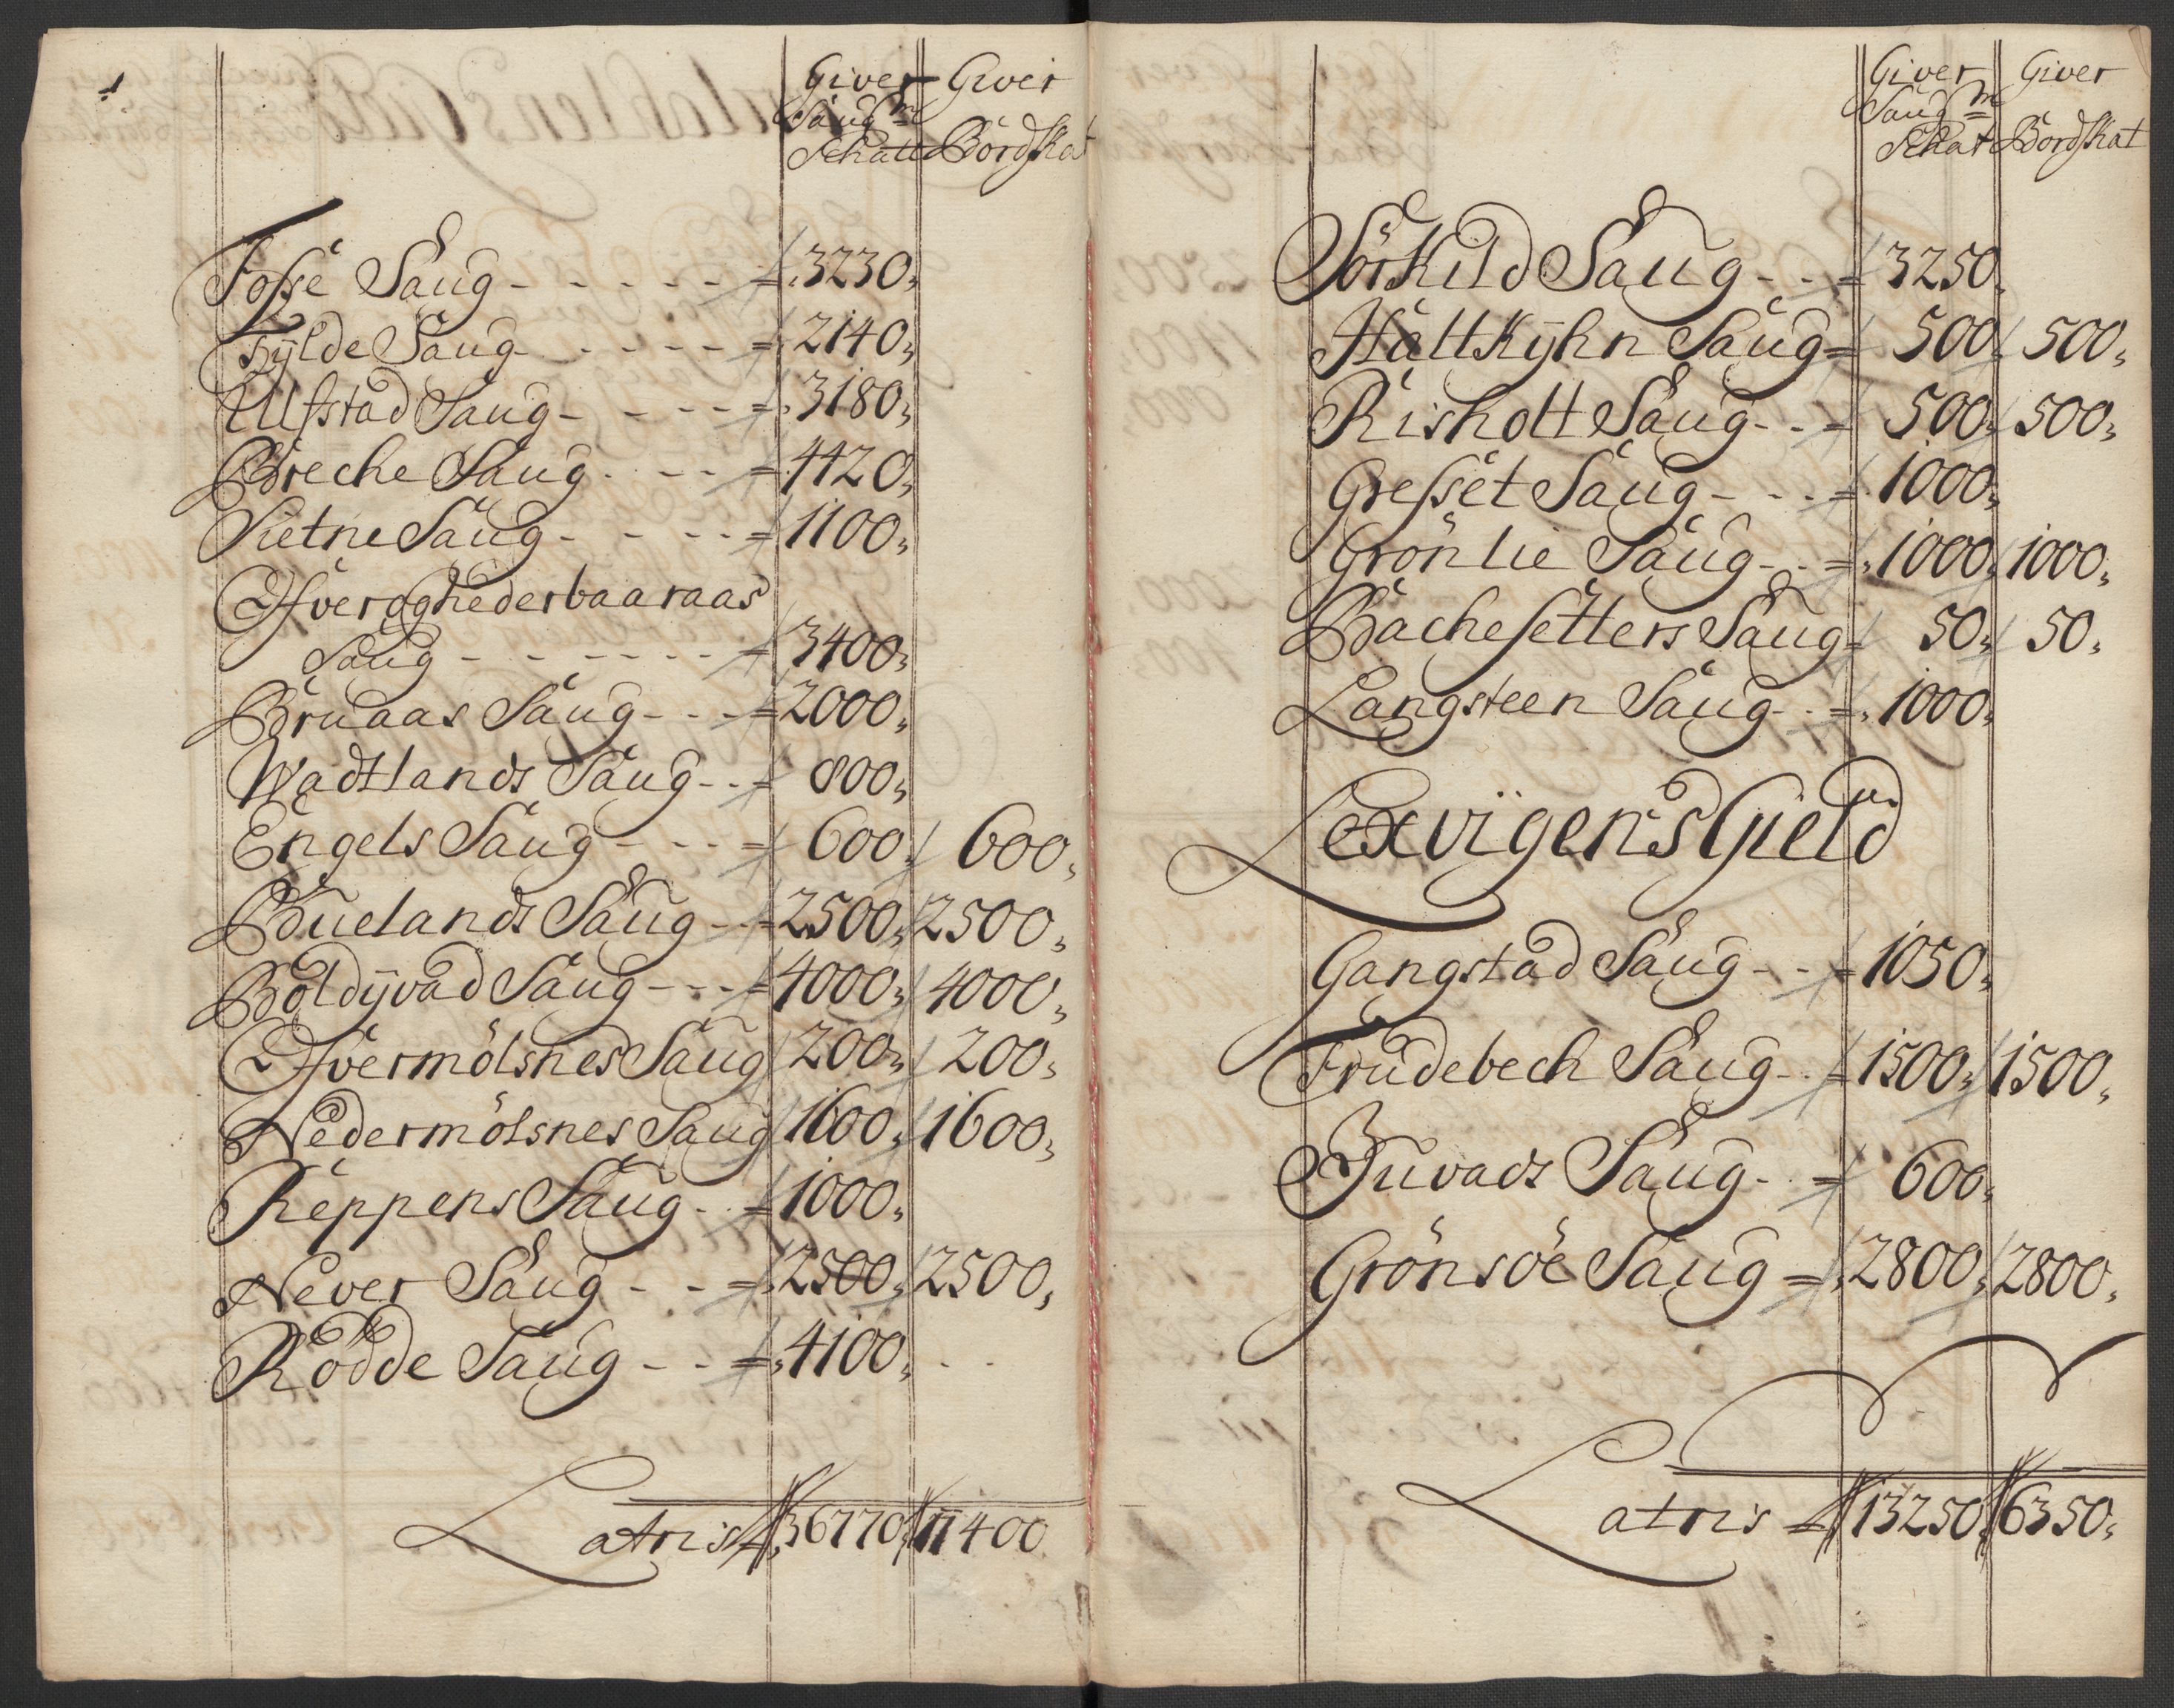 Giver Giver
Saug m
Schatt Bördskat
Fosse Saug - - - - - = 3230,
Fÿlde Saug - - - - - = 2140,
Ulfstad Saug - - - - = 3180,
Breche Saug - - - = 4420,
Sietne Saug - - - - = 1100,
Ofveroghederbaaraas
Saug - - - - - - = 3400,
Bruaas Saug - - - = 2000,
Wadtlands Saug - - = 800,
Engels Saug - - - = 600, 600,
Buelands Saug - - = 2500, 2500,
Boldÿvad Saug - - - = 4000, 4000,
Ofvermölsnes Saug 200, 200,
Nedermölsnes Saug 1600, 1600,
Reppens Saug - - = 1000,
Never Saug - - = 2500, 2500,
Rödde Saug - - = 4100, - -
Latris 36770, 11400
Giver Giver
Saug m
Skat Bordskat
Sörkild Saug - - = 3250,
Hattkÿhn Saug = 500, 500,
Risholt Saug - - = 500, 500,
Gresset Saug - - - = 1000,
Grönlie Saug - - = 1000, 1000,
Bachesetters Saug = 50, 50,
Langsteen Saug - - = 1000,
Lexvigens Gield
Gangstad Saug - - = 1050,
Frudebech Saug - - = 1500, 1500,
Juvads Saug - - = 600,
Grönsöe Saug = 2800, 2800,
Latris 13250, 6350,